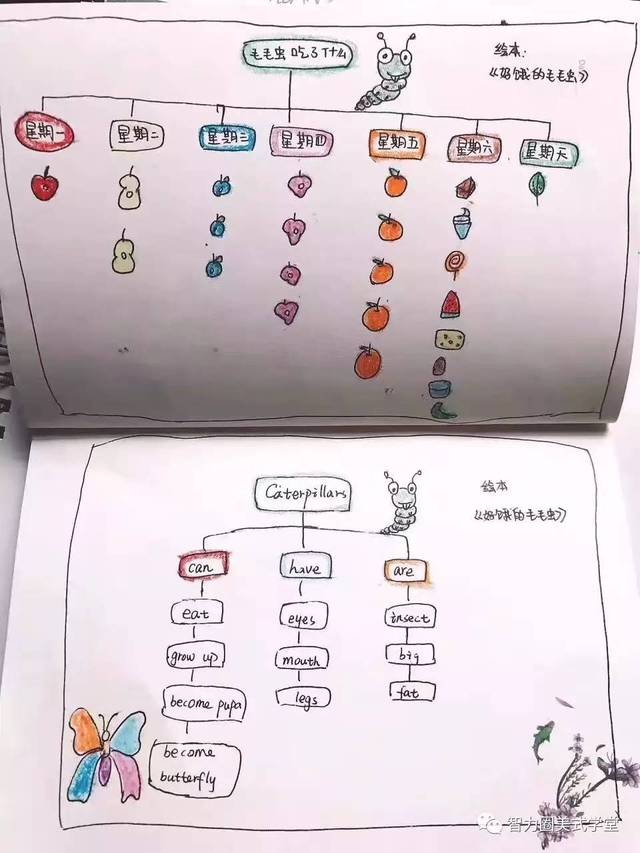 毛毛虫吃了什么
绘本:
《好饿的毛毛虫》
星期一
星期二
星期三
星期四
星期五
星期六
星期天
Caterpillars
绘本
《好饿的毛毛虫》
can
have
are
eat
eyes
insect
grow up
mouth
big
become pupa
legs
fat
become
butterfly
智力圈美式学堂